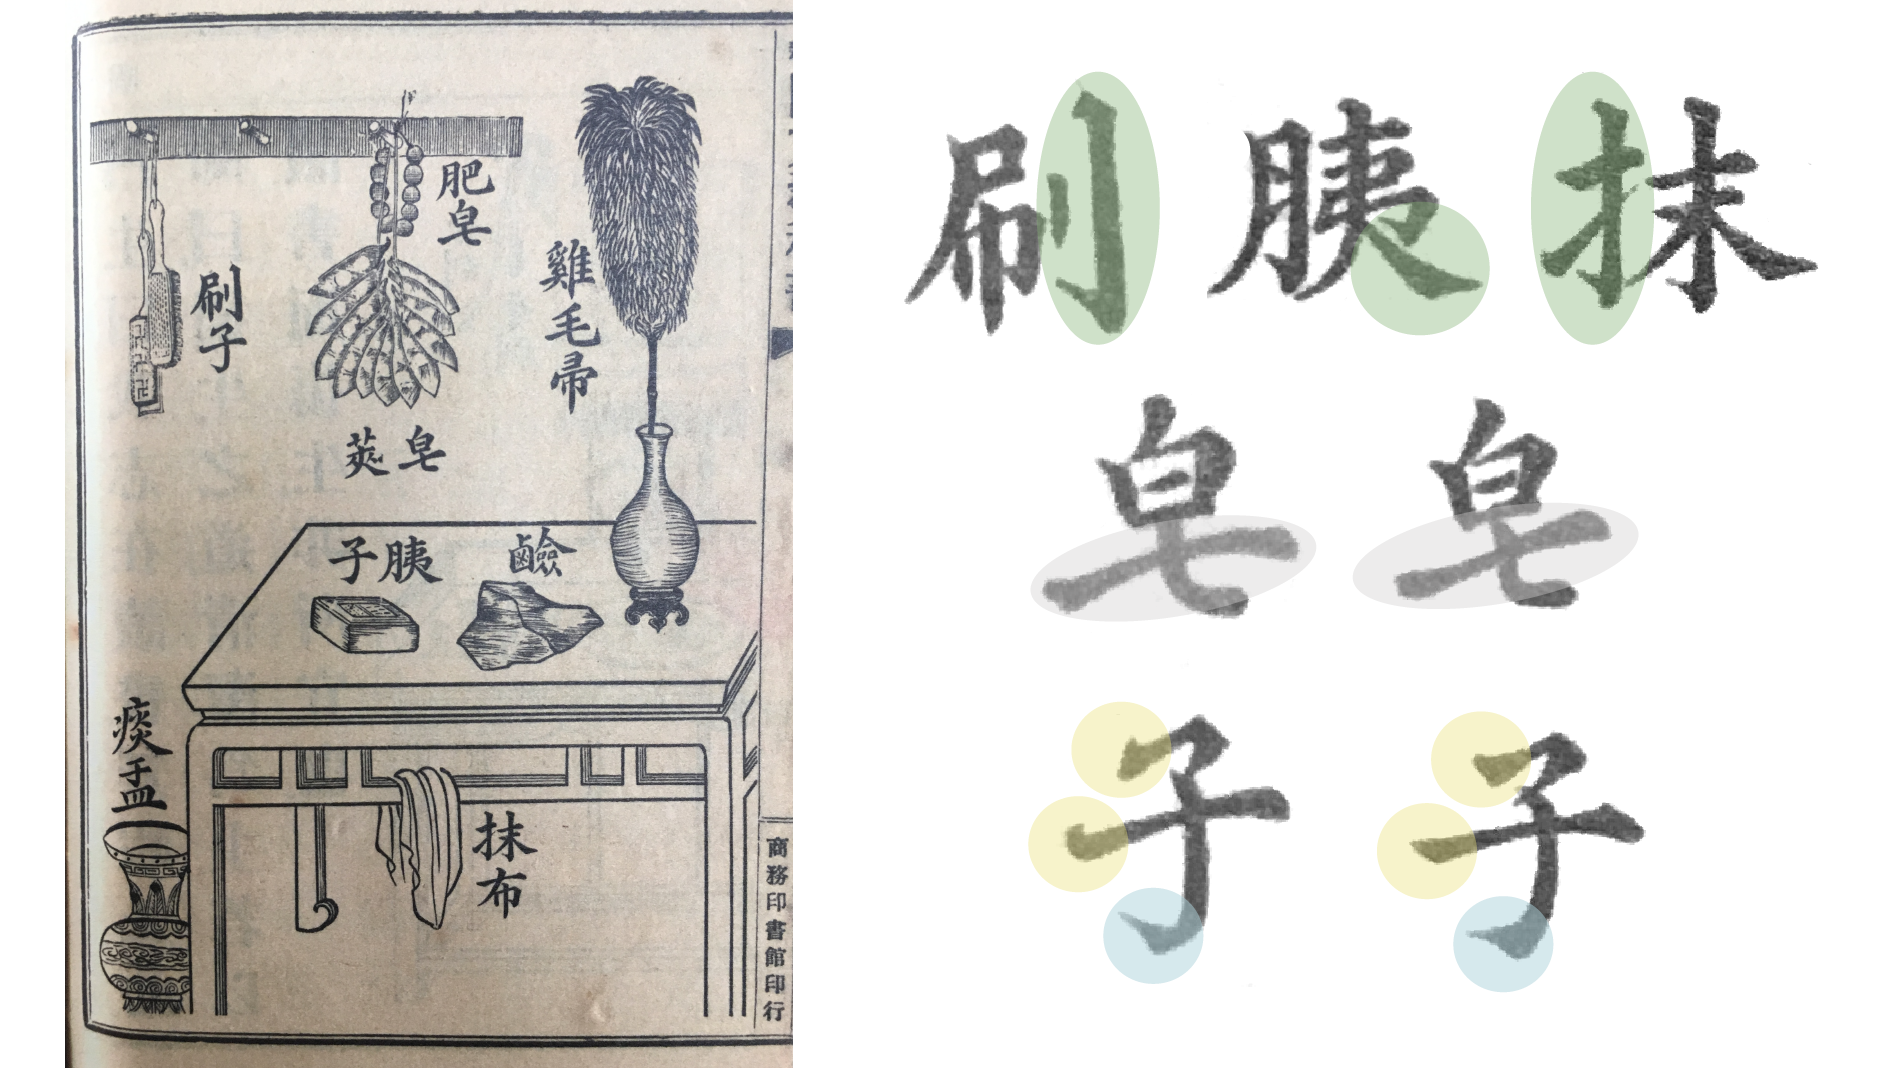 肥皂
雞毛帚
刷子
皂莢
鹼
胰子
痰盂
抹布
商務印書館印行
刷 胰 抹
皂 皂
子 子